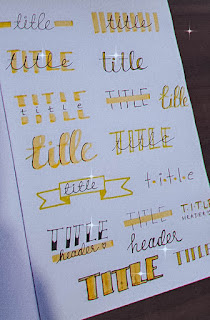 title
title
TITLE
title
TITLE
title
TITLE
title
title
TITLE
title
t·i·t·l·e
TITLE
TITLE
HEADER
TITLE
header
header
TITLE
TITLE